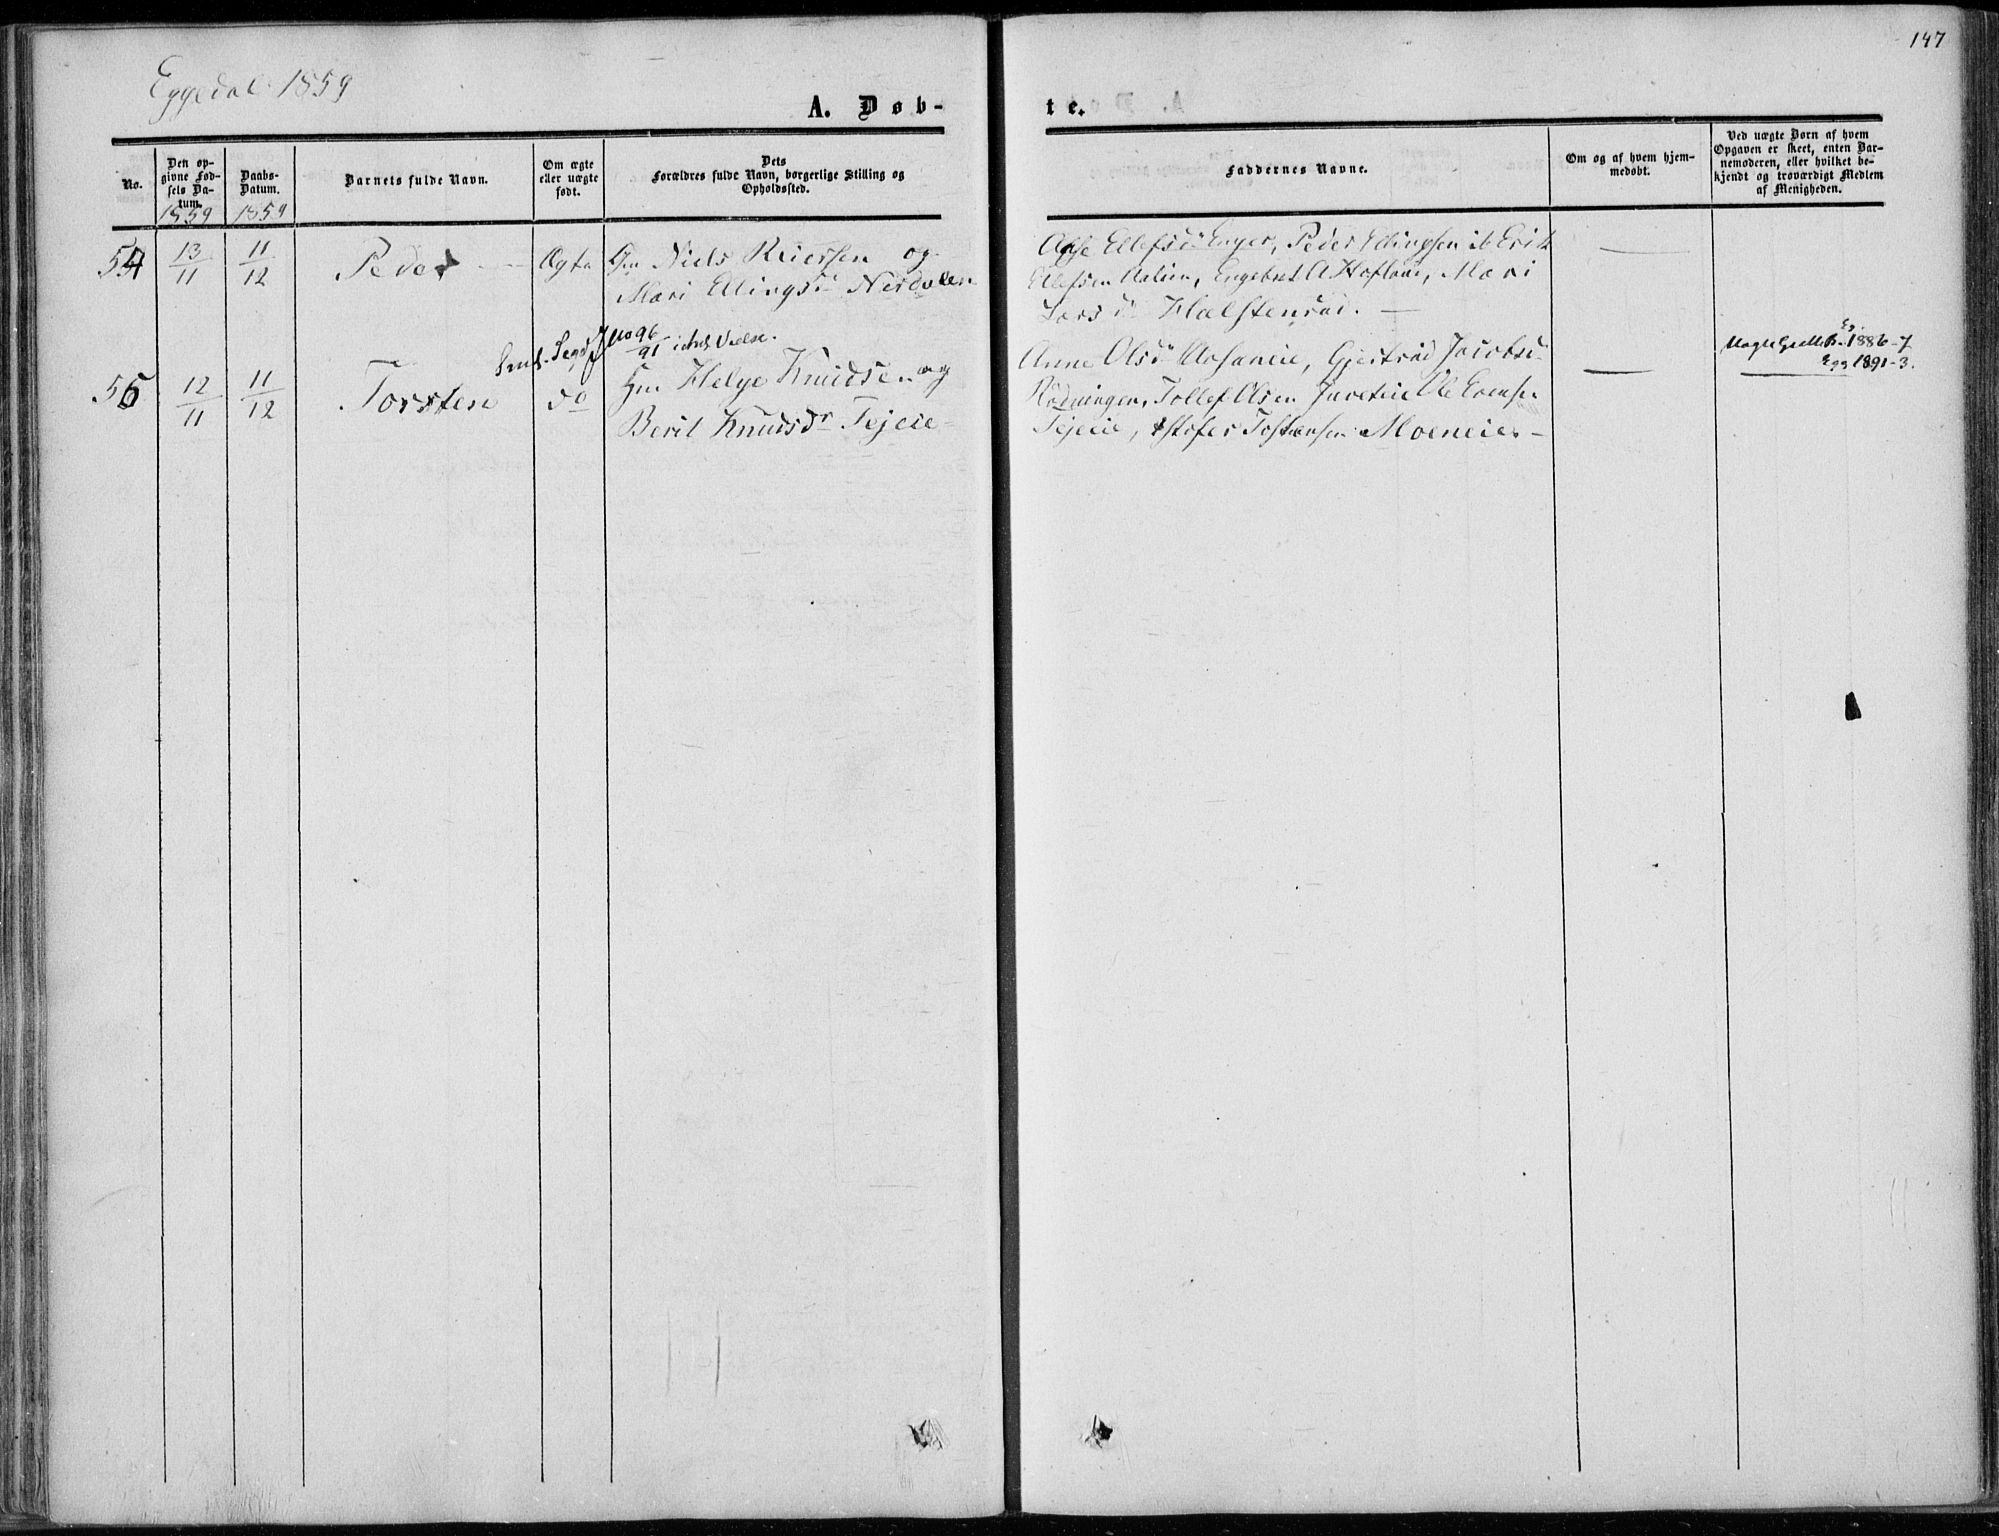 147
Eggedal 1859
A. Døb-
te.
No.
Den op-
givne Fød-
sels Da-
tum.
1859
Daabs-
Datum.
1859
Barnets fulde Navn.
Om ægte
eller uægte
født.
Dets
Forældres fulde Navn, borgerlige Stilling og
Opholdssted.
Faddernes Navne.
Om og af hvem hjem-
medøbt.
Ved uægte Børn af hvem
Opgaven er skeet, enten Bar-
nemoderen, eller hvilket be-
kjendt og troværdigt Medlem
af Menigheden.
54
13/11
11/12
Peder
Ægte
Gm Niels Reiersen og
Mari Ellingsd Nerdalen
Ellefsd Enger, Peder Ellingsen ib Erik
Ellefsen Engebret A Hoflan, Mari
Lars d Halstensrud.
No 96/91
56
12/11
11/12
Torsten
do
Hm Helge Knudsen og
Berit Knudsdr Fejeie
Anne Olsd Gjertrud Jacobsd
Rødningen, Tollef Olsen Ole
Fejeie, Tostensen Moeneie
Eg.
1886-7
Egg 1891-3.